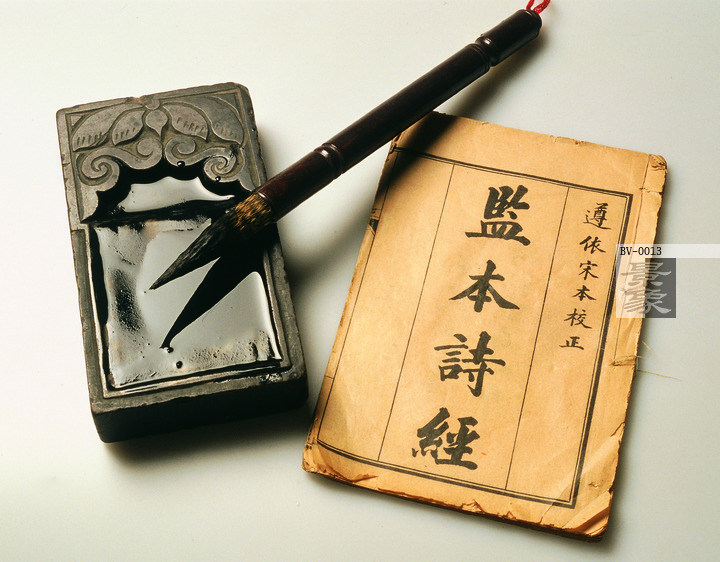 遵依宋本校正
監本詩經
BV-0013
景象